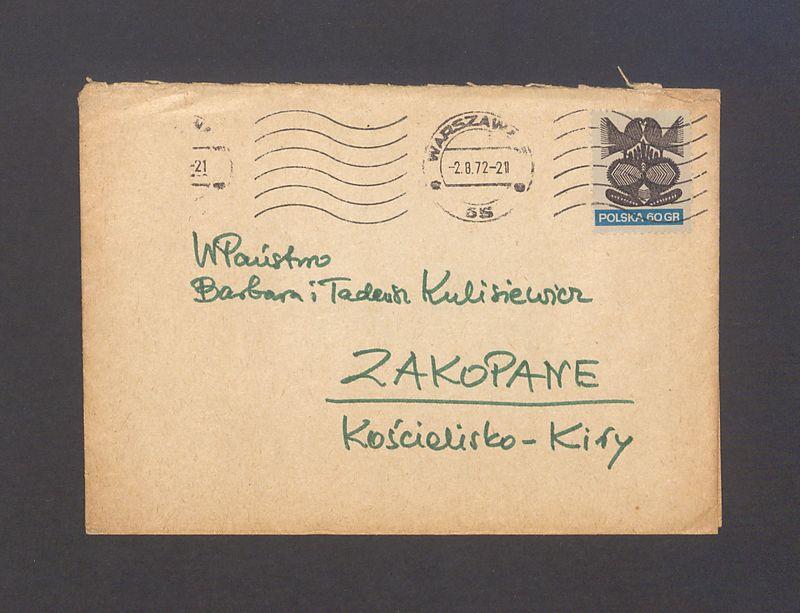 WARSZAWA
-21
-2.8.72-21
POLSKA 60 GR
WPaństwo
Barbara i Tadeusz Kulisiewicz
ZAKOPANE
Kościelisko-Kiry